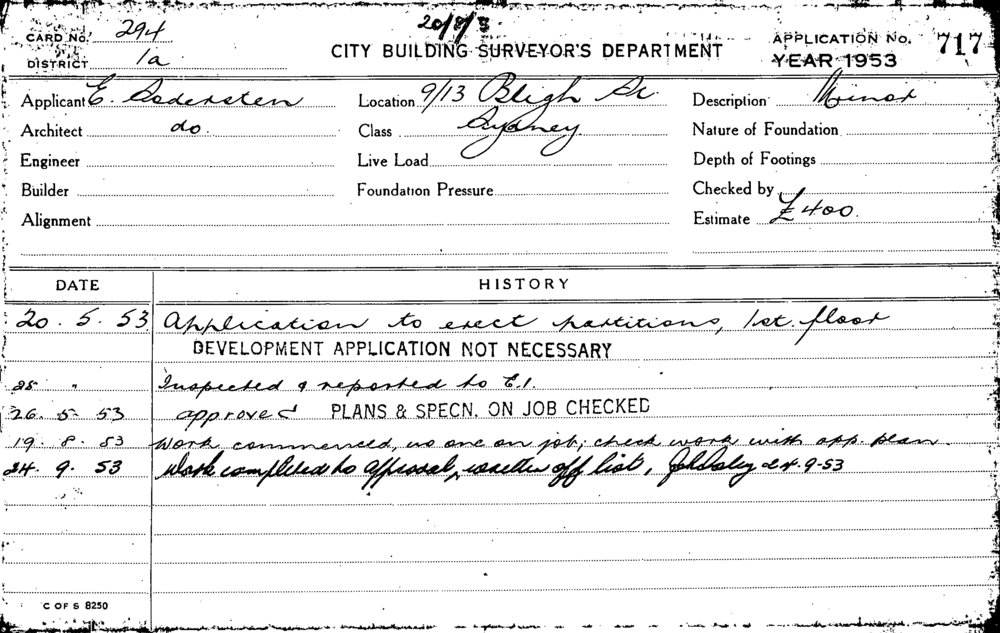 20/8/5
CARD No. 294
CITY BUILDING SURVEYOR'S DEPARTMENT
APPLICATION No. 717
DISTRICT 1a
YEAR 1953
Applicant E. Sodersten
Location 9/13 Bligh St
Description Minor
Architect do.
Class Sydney
Nature of Foundation
Engineer
Live Load
Depth of Footings
Builder
Foundation Pressure
Checked by
Alignment
Estimate £400.
DATE
HISTORY
20. 5. 53 Application to erect partitions, 1st. floor
DEVELOPMENT APPLICATION NOT NECESSARY
25 " Inspected & reported to E.I.
26. 5. 53 approved PLANS & SPECN. ON JOB CHECKED
19. 8. 53 Work commenced, no one on job; check work with app. plan.
24. 9. 53 Work completed to approval, written off list, 24.9.53
C OF S 8250